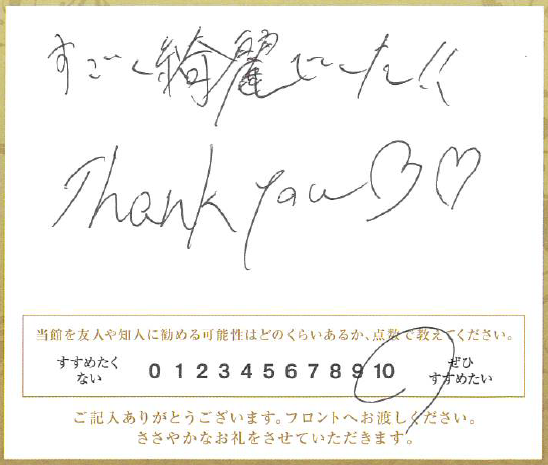 すごく綺麗でした!!
Thank you♡♡
当館を友人や知人に勧める可能性はどのくらいあるか、点数で教えてください。
すすめたくない 0 1 2 3 4 5 6 7 8 9 10 ぜひすすめたい
ご記入ありがとうございます。フロントへお渡しください。
ささやかなお礼をさせていただきます。